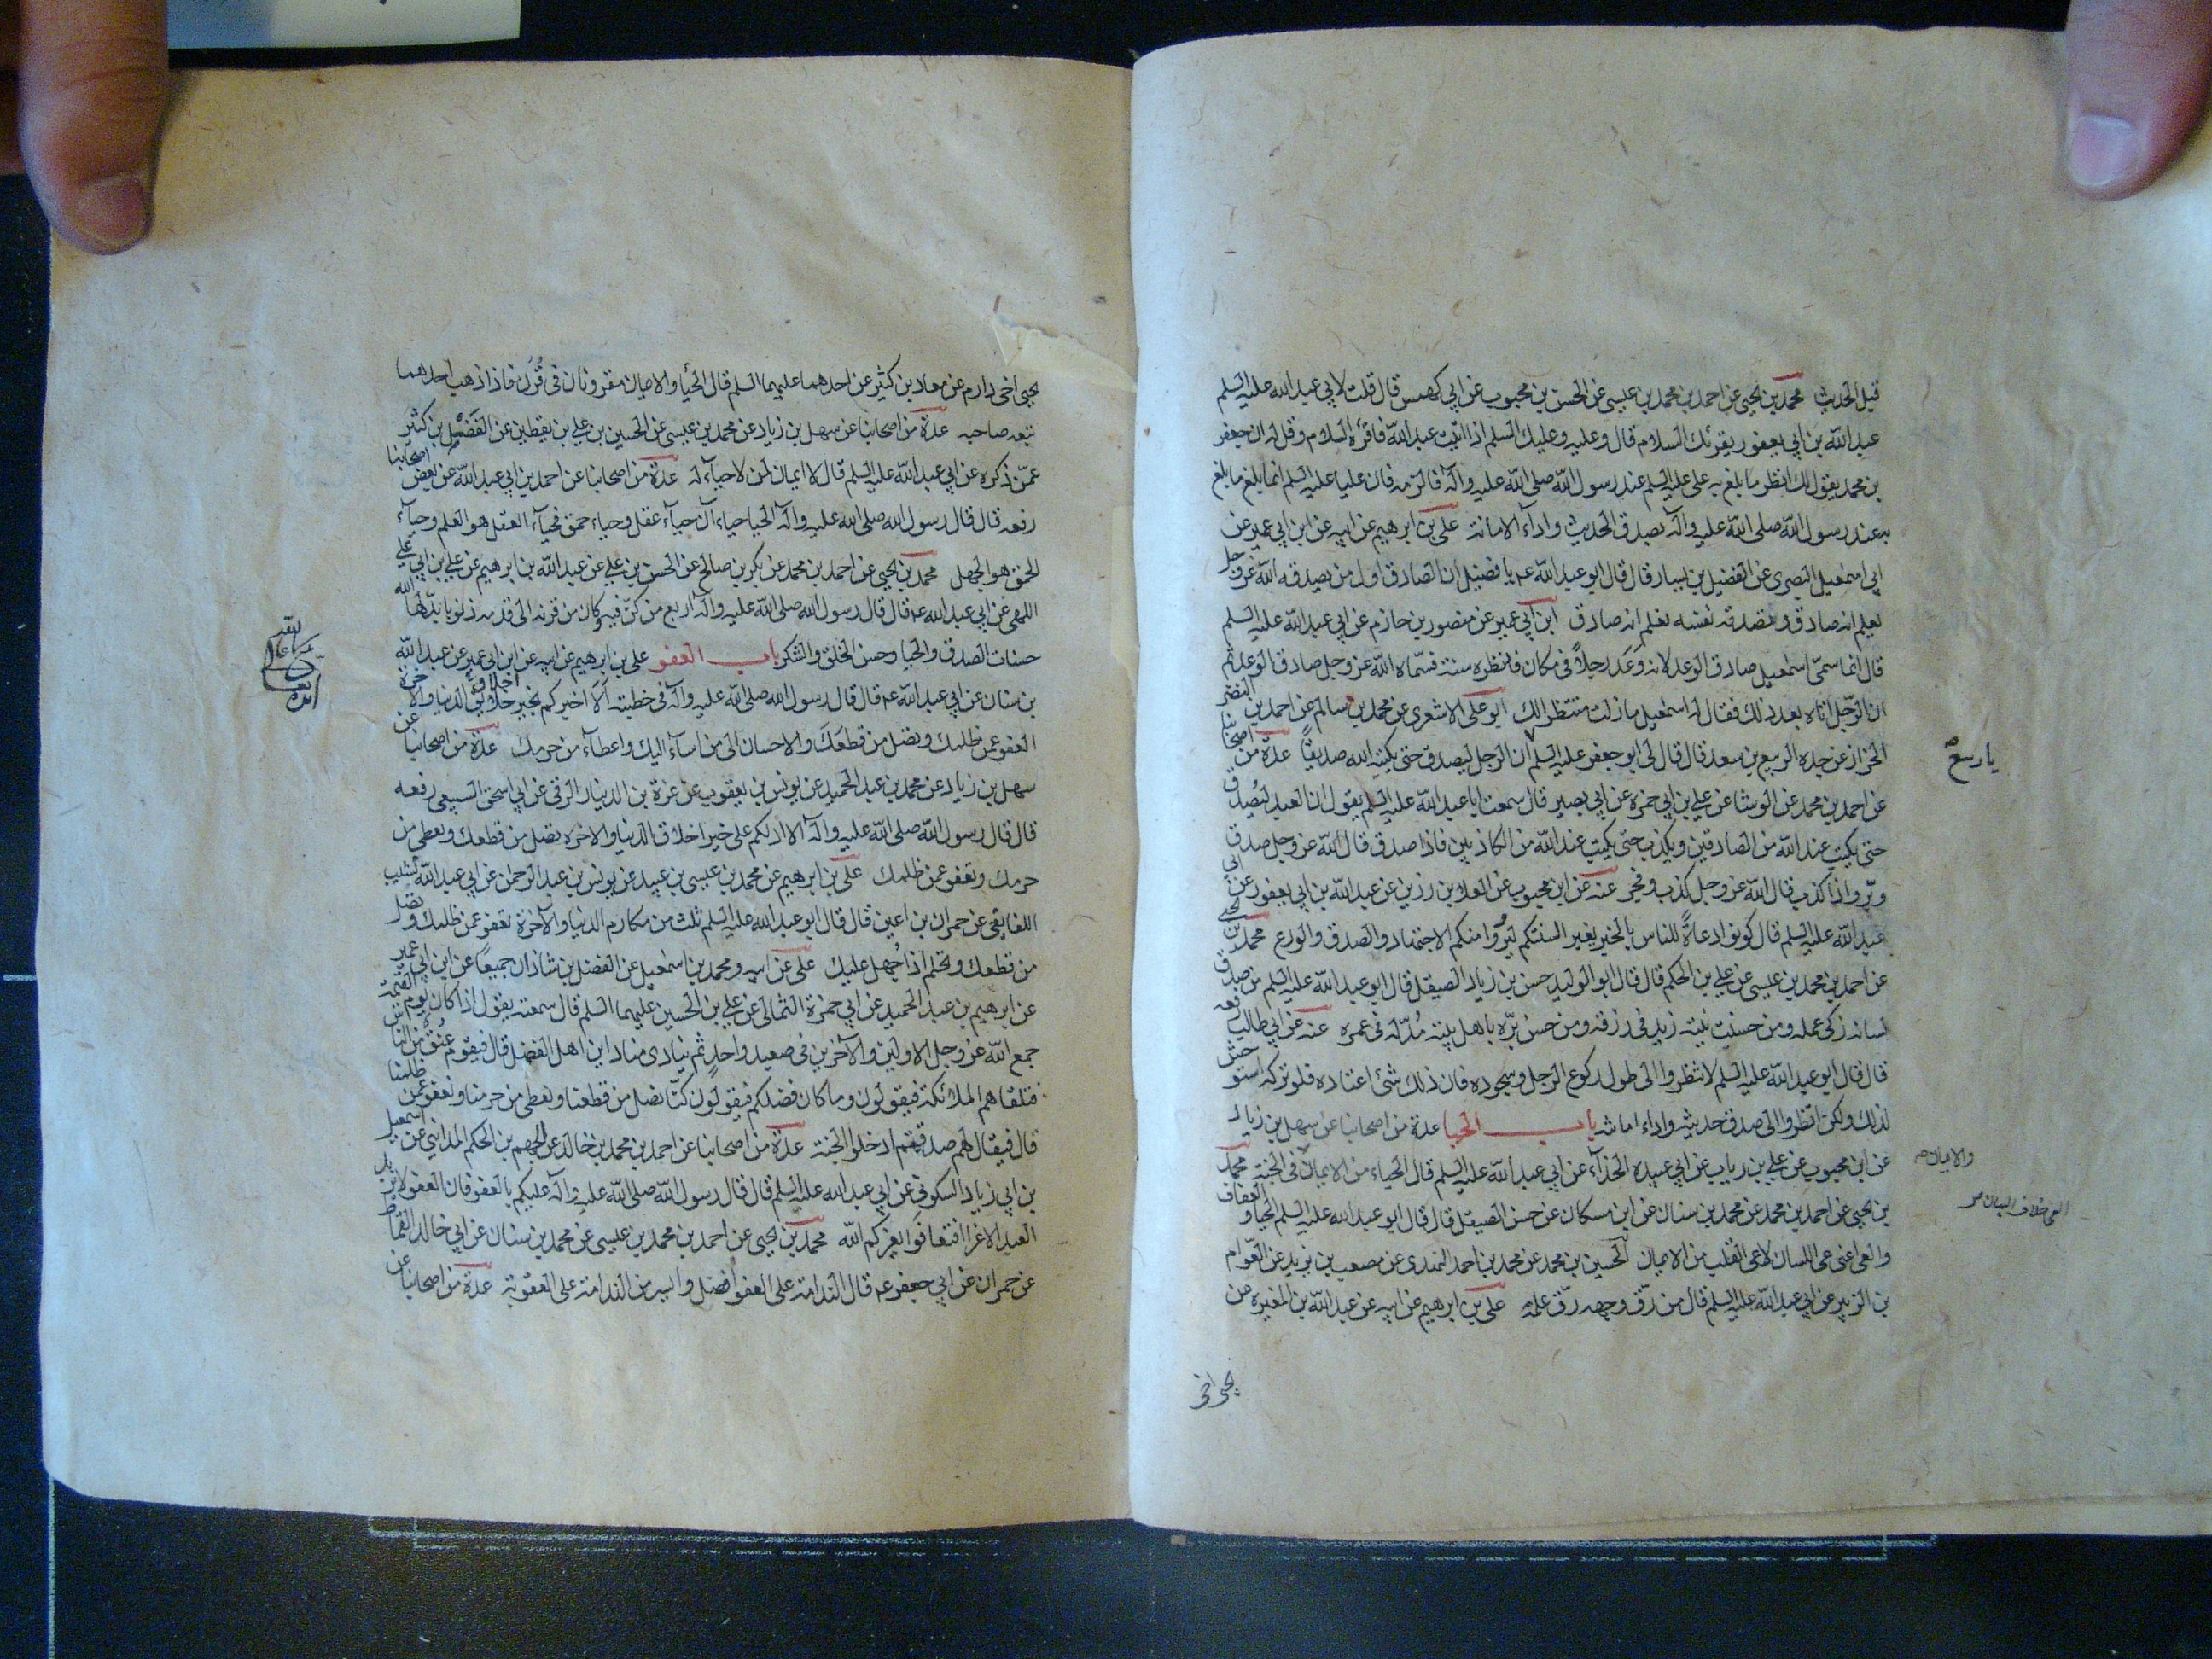 قبل الحديث محمد بن يحيى عن احمد بن محمد بن عيسى عن الحسن بن محبوب عن ابي كهمس قال قلت لابي عبد الله عليه السلم
عبد الله بن ابي يعفور يقرئك السلام قال وعليه وعليك السلم اذا اتيت عبد الله فاقرئه السلام وقل له ان جعفر
بن محمد يقول لك انظر ما بلغ به علي عليه السلم عند رسول الله صلى الله عليه واله فالزمه فان عليا عليه السلم انما بلغ ما بلغ
به عند رسول الله صلى الله عليه واله بصدق الحديث واداء الامانة علي بن ابرهيم عن ابيه عن ابن ابي عمير عن
ابي اسمعيل البصري عن الفضيل بن يسار قال قال ابو عبد الله عم يا فضيل ان الصادق اول من يصدقه الله عز وجل
يعلم انه صادق وتصدقه نفسه تعلم انه صادق ابن ابي عمير عن منصور بن حازم عن ابي عبد الله عليه السلم
قال انما سمي اسمعيل صادق الوعد لانه وعد رجلا في مكان فانتظره سنة فسماه الله عز وجل صادق الوعد ثم
ان الرجل اتاه بعد ذلك فقال له اسمعيل ما زلت منتظرا لك ابو علي الاشعري عن محمد بن سالم عن احمد بن النضر
الخزاز عن جده الربيع بن سعد قال قال لي ابو جعفر عليه السلم ان الرجل ليصدق حتى يكتبه الله صديقا عدة من اصحابنا
يا ربيع
عن احمد بن محمد عن الوشا عن علي بن ابي حمزه عن ابي بصير قال سمعت ابا عبد الله عليه السلم يقول ان العبد ليصدق
حتى يكتب عند الله من الصادقين ويكذب حتى يكتب عند الله من الكاذبين فاذا صدق قال الله عز وجل صدق
وبر واذا كذب قال الله عز وجل كذب وفجر عنه عن ابن محبوب عن العلا بن رزين عن عبد الله بن ابي يعفور عن ابي
عبد الله عليه السلم قال كونوا دعاة للناس بالخير بغير السنتكم ليروا منكم الاجتهاد والصدق والورع محمد بن يحيى
عن احمد بن محمد بن عيسى عن علي بن الحكم قال قال ابو الوليد حسن بن زياد الصيقل قال ابو عبد الله عليه السلم من صدق
لسانه زكى عمله ومن حسنت نيته زيد في رزقه ومن حسن بره باهل بيته مد له في عمره عنه عن ابي طالب رفعه
قال قال ابو عبد الله عليه السلم لا تنظروا الى طول ركوع الرجل وسجوده فان ذلك شئ اعتاده فلو تركه استوحش
لذلك ولكن انظروا الى صدق حديثه واداء امانته باب الحيا عدة من اصحابنا عن سهل بن زياد
عن ابن محبوب عن علي بن رياب عن ابي عبيده الحذاء عن ابي عبد الله عليه السلم قال الحياء من الايمان في الجنة محمد
والايمان
بن يحيى عن احمد بن محمد عن محمد بن سنان عن ابن مسكان عن حسن الصيقل قال قال ابو عبد الله عليه السلم الحيا والعفاف
العي خلاف البيان
والعي اعني عي اللسان لا عي القلب من الايمان الحسين بن محمد عن محمد بن احمد النهدي عن مصعب بن يزيد عن العوام
بن الزبير عن ابي عبد الله عليه السلم قال من رق وجهه رق علمه علي بن ابرهيم عن ابيه عن عبد الله بن المغيره عن
يحيى اخي
يحيى اخي دارم عن معاد بن كثير عن احدهما عليهما السلم قال الحيا والايمان مقرونان في قرن فاذا ذهب احدهما
تبعه صاحبه عدة من اصحابنا عن سهل بن زياد عن محمد بن عيسى عن الحسين بن علي بن يقطين عن الفضيل بن كثير
عمن ذكره عن ابي عبد الله عليه السلم قال لا ايمان لمن لا حياء له عدة من اصحابنا عن احمد بن ابي عبد الله عن بعض اصحابنا
رفعه قال قال رسول الله صلى الله عليه واله الحيا حياءان حياء عقل وحياء حمق فحياء العقل هو العلم وحياء
الحمق هو الجهل محمد بن يحيى عن احمد بن محمد عن بكر بن صالح عن الحسن بن علي عن عبد الله بن ابرهيم عن علي بن ابي علي
اللهبي عن ابي عبد الله عم قال قال رسول الله صلى الله عليه واله اربع من كن فيه وكان من قرنه الى قدمه ذنوبا بدلها الله
حسنات الصدق والحيا وحسن الخلق والشكر باب العفو علي بن ابرهيم عن ابيه عن ابن ابي عمير عن عبد الله
بن سنان عن ابي عبد الله عم قال قال رسول الله صلى الله عليه واله في خطبته الا اخبركم بخير خلائق الدنيا والاخرة
اخلاق
العفو عمن ظلمك وتصل من قطعك والاحسان الى من اساء اليك واعطاء من حرمك عدة من اصحابنا عن
سهل بن زياد عن محمد بن عبد الحميد عن يونس بن يعقوب عن غرة بن الدينار الرقي عن ابي اسحق السبيعي رفعه
قال قال رسول الله صلى الله عليه واله الا ادلكم على خير اخلاق الدنيا والاخره تصل من قطعك وتعطي من
حرمك وتعفو عمن ظلمك علي بن ابرهيم عن محمد بن عيسى بن عبيد عن يونس بن عبد الرحمن عن ابي عبد الله نشيب
اللفايفي عن حمران بن اعين قال قال ابو عبد الله عليه السلم ثلث من مكارم الدنيا والآخرة تعفو عمن ظلمك وتصل
من قطعك وتحلم اذا جهل عليك علي عن ابيه ومحمد بن اسمعيل عن الفضل بن شاذان جميعا عن ابن ابي عمير
عن ابرهيم بن عبد الحميد عن ابي حمزة الثمالي عن علي بن الحسين عليهما السلم قال سمعته يقول اذا كان يوم القيمة
جمع الله عز وجل الاولين والآخرين في صعيد واحد ثم ينادي مناد اين اهل الفضل قال فيقوم عنق من الناس
فتلقاهم الملائكة فيقولون وما كان فضلكم فيقولون كنا نصل من قطعنا ونعطي من حرمنا ونعفو عمن ظلمنا
قال فيقال لهم صدقتم ادخلوا الجنة عدة من اصحابنا عن احمد بن محمد بن خالد عن الجهم بن الحكم المدايني عن اسمعيل
بن ابي زياد السكوني عن ابي عبد الله عليه السلم قال قال رسول الله صلى الله عليه واله عليكم بالعفو فان العفو لا يزيد
العبد الا عزا فتعافوا يعزكم الله محمد بن يحيى عن احمد بن محمد بن عيسى عن محمد بن سنان عن ابي خالد القماط
عن حمران عن ابي جعفر عم قال الندامة على العفو افضل وايسر من الندامة على العقوبة عدة من اصحابنا عن